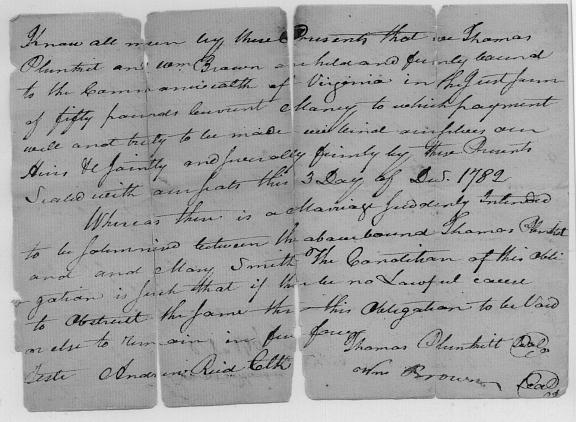 Know all men by these Presents that we Thomas
Plunkit and Wm Brown are held and firmly bound
to the Commonwealth of Virginia in the Just sum
of fifty pounds Current Money to which payment
well and truly to be made we bind ourselves our
Heirs &c Jointly and severally firmly by these Presents
Sealed with our seals this 3 Day of Decr. 1782
Whereas there is a Marriage Suddenly Intended
to be solemnized between the above bound Thomas Plunkit
and and Mary Smith The Condition of this Obli
gation is such that if there be no Lawful cause
to Obstruct the same then this Obligation to be Void
or else to remain in full force
Thomas Plunkitt Seal
Teste Andrew Reid Clk
Wm Brown Seal